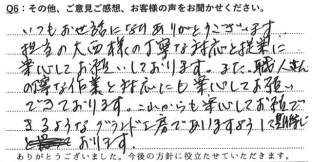 Q6：その他、ご意見ご感想、お客様の声をお聞かせください。
いつもお世話になりありがとうございます。
担当の大西様の丁寧な対応と提案に
安心してお願いしております。また、職人さん
の丁寧な作業と対応にも安心してお願い
できております。これからも安心してお願いで
きるようなグランド工房でありますように期待して
おります。
ありがとうございました。今後の方針に役立たせていただきます。